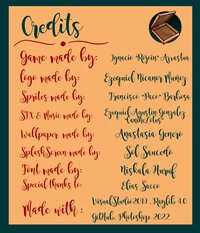 Credits
Game made by: Ignacio "Rizoin" Arrastua
Logo made by: Ezequiel Nicanor Muñoz
Sprites made by: Francisco "Paco" Barbosa
SFX & Music made by: Ezequiel Agustin Gonzalez
Wallpaper made by: Anastasia Genero
SplashScreen made by: Sol Saucedo
Font made by: Niskala Huruf
Special thanks to: Elias Sacco
Made with : VisualStudio 2019 , Raylib 4.0
GitHub, Photoshop 2022